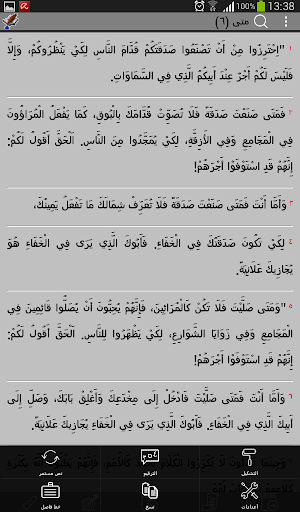 13:38
متى (٦)
١ "اِحْتَرِزُوا مِنْ أَنْ تَصْنَعُوا صَدَقَتَكُمْ قُدَّامَ النَّاسِ لِكَيْ يَنْظُرُوكُمْ، وَإِلَّا
فَلَيْسَ لَكُمْ أَجْرٌ عِنْدَ أَبِيكُمُ الَّذِي فِي السَّمَاوَاتِ.
٢ فَمَتَى صَنَعْتَ صَدَقَةً فَلَا تُصَوِّتْ قُدَّامَكَ بِالْبُوقِ، كَمَا يَفْعَلُ الْمُرَاؤُونَ
فِي الْمَجَامِعِ وَفِي الْأَزِقَّةِ، لِكَيْ يُمَجَّدُوا مِنَ النَّاسِ. اَلْحَقَّ أَقُولُ لَكُمْ:
إِنَّهُمْ قَدِ اسْتَوْفَوْا أَجْرَهُمْ!
٣ وَأَمَّا أَنْتَ فَمَتَى صَنَعْتَ صَدَقَةً فَلَا تُعَرِّفْ شِمَالَكَ مَا تَفْعَلُ يَمِينُكَ،
٤ لِكَيْ تَكُونَ صَدَقَتُكَ فِي الْخَفَاءِ. فَأَبُوكَ الَّذِي يَرَى فِي الْخَفَاءِ هُوَ
يُجَازِيكَ عَلَانِيَةً.
٥ "وَمَتَى صَلَّيْتَ فَلَا تَكُنْ كَالْمُرَائِينَ، فَإِنَّهُمْ يُحِبُّونَ أَنْ يُصَلُّوا قَائِمِينَ فِي
الْمَجَامِعِ وَفِي زَوَايَا الشَّوَارِعِ، لِكَيْ يَظْهَرُوا لِلنَّاسِ. اَلْحَقَّ أَقُولُ لَكُمْ:
إِنَّهُمْ قَدِ اسْتَوْفَوْا أَجْرَهُمْ!
٦ وَأَمَّا أَنْتَ فَمَتَى صَلَّيْتَ فَادْخُلْ إِلَى مِخْدَعِكَ وَأَغْلِقْ بَابَكَ، وَصَلِّ إِلَى
أَبِيكَ الَّذِي فِي الْخَفَاءِ. فَأَبُوكَ الَّذِي يَرَى فِي الْخَفَاءِ يُجَازِيكَ عَلَانِيَةً.
التشكيل
الترقيم
نص مستمر
اعدادات
نسخ
خط فاصل